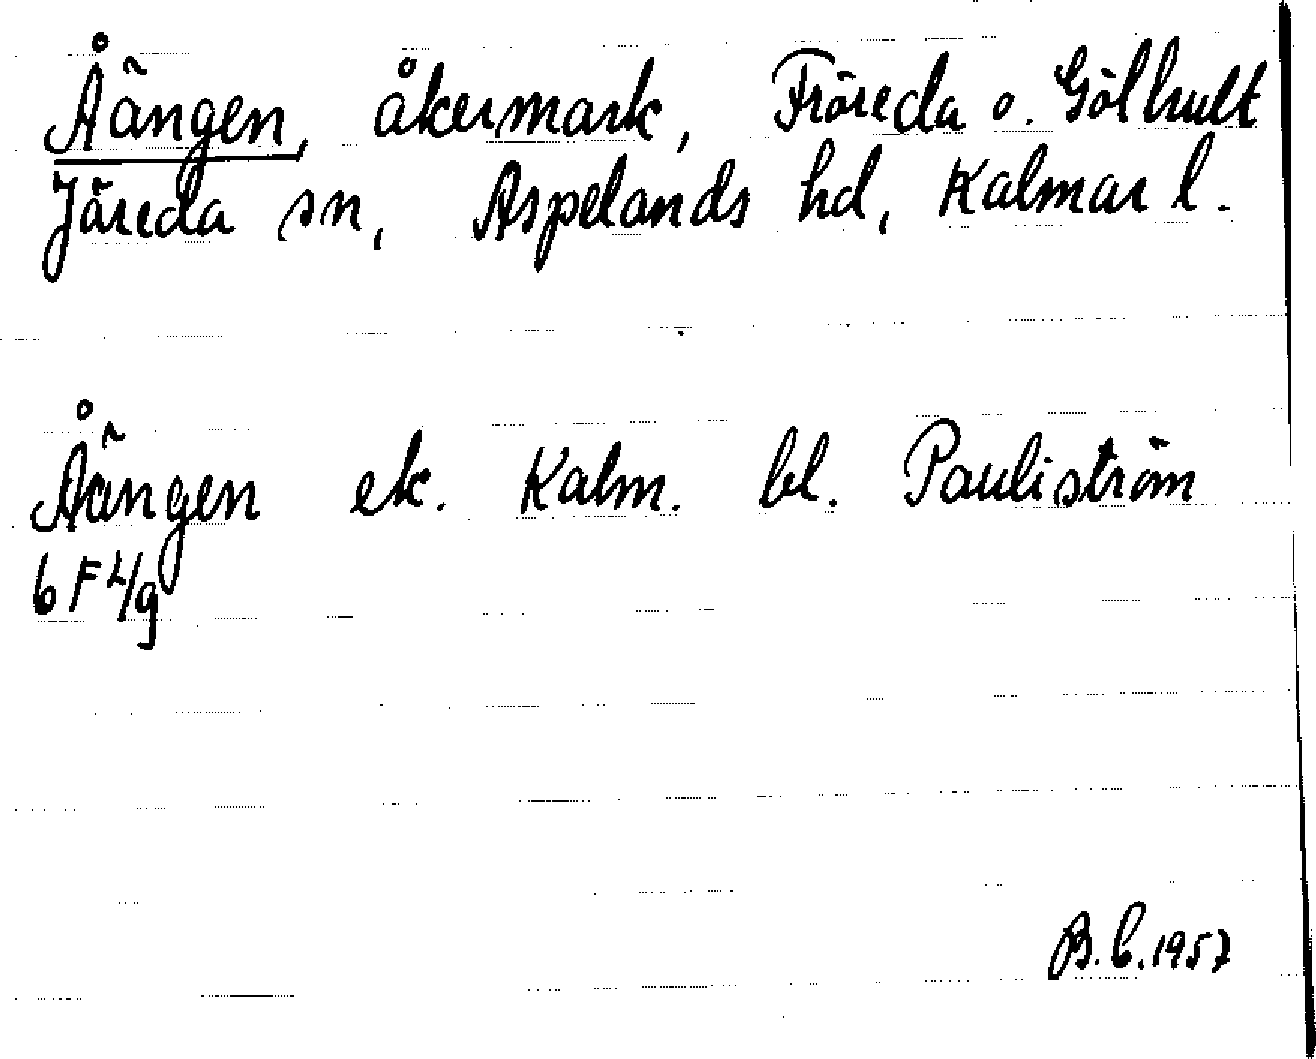 Åängen, åkermark, Fröreda o. Gölhult
Järeda sn, Aspelands hd, Kalmar l.
Åängen ek. Kalm. bl. Pauliström
6 F 4/g
B. C. 1957